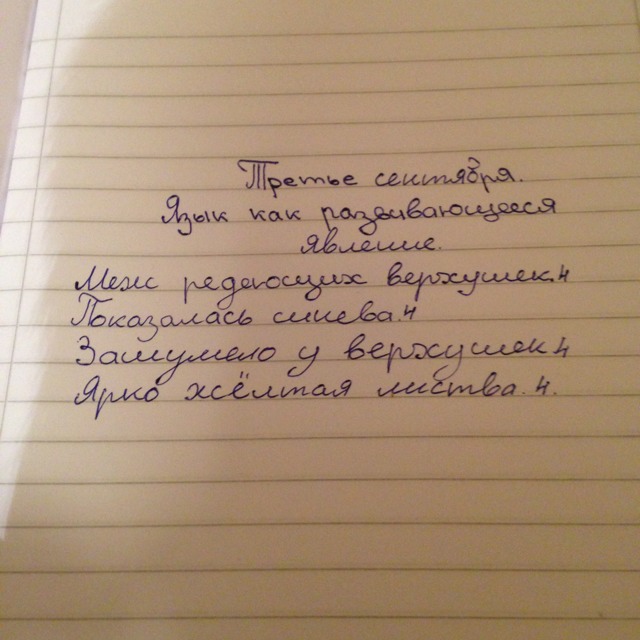 Третье сентября.
Язык как развивающееся
явление.
Меж редеющих верхушек.4
Показалась синева.4
Зашумело у верхушек 4
Ярко жёлтая листва. 4.